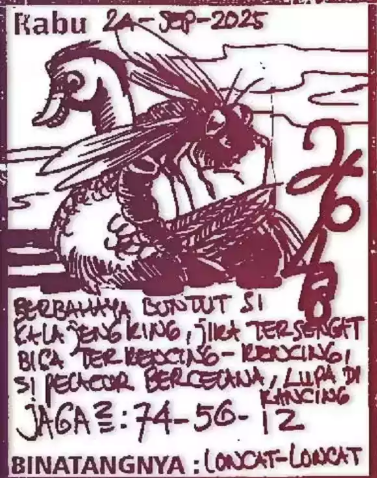 Rabu 24-SEP-2025
2648
BERBAHAYA BUNTUT SI
KALAJENGKING, JIKA TERSENGAT
BISA TERKENCING-KENCING,
SI PELACUR BERCELANA, LUPA DI
KANCING
JAGA2=: 74-56-12
BINATANGNYA : LONCAT-LONCAT